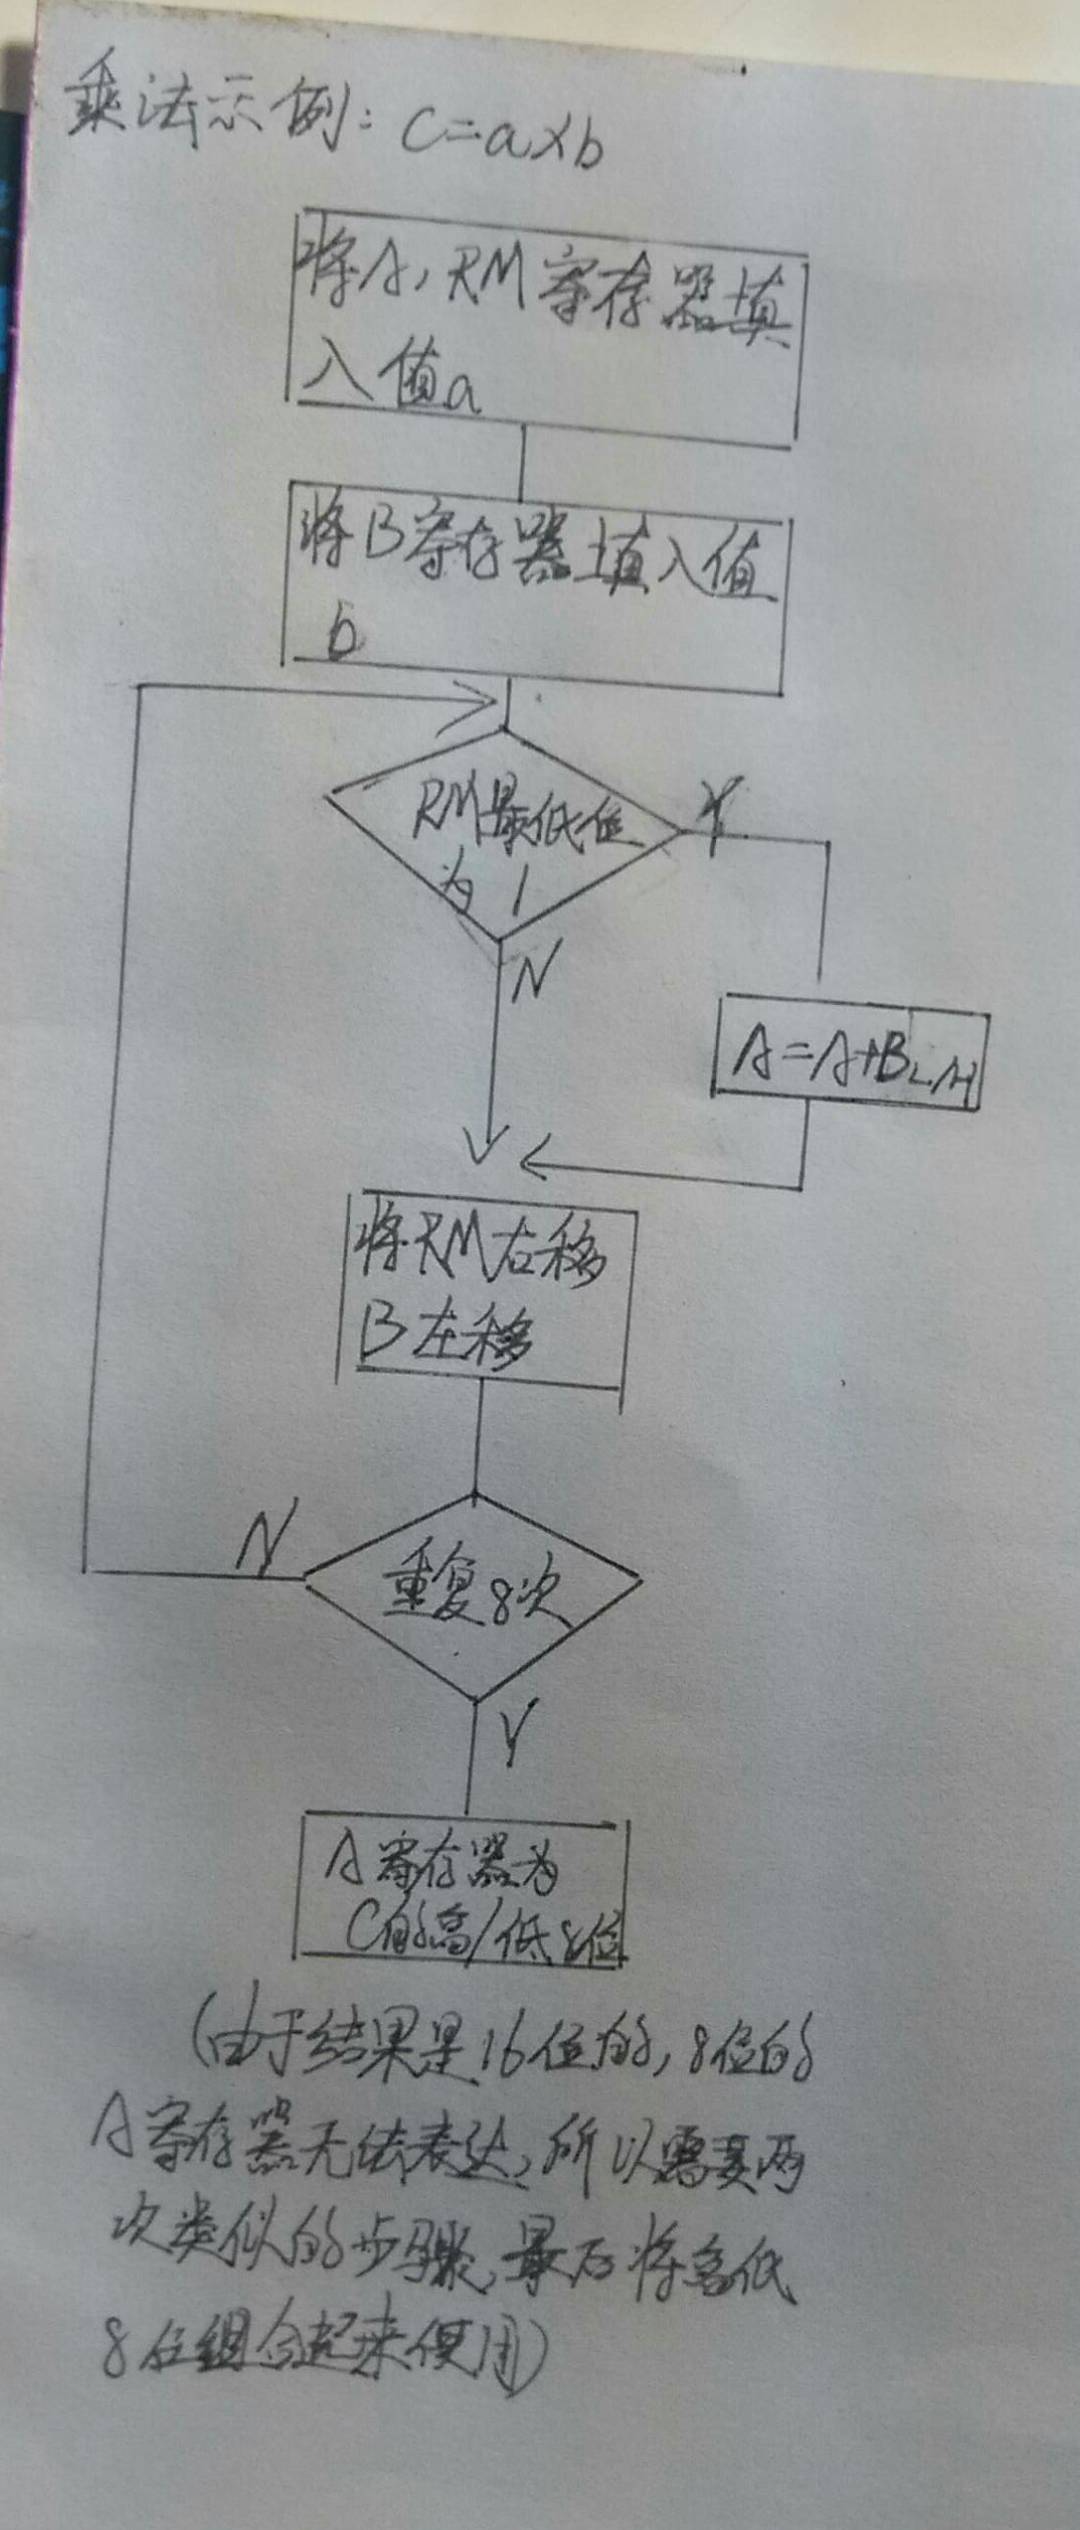 乘法示例: C=a×b
将A,RM寄存器填
入值a
将B寄存器填入值
b
RM最低位
为1
Y
N
A=A+BL/H
将RM右移
B左移
N
重复8次
Y
A寄存器为
C的高/低8位
(由于结果是16位的,8位的
A寄存器无法表达,所以需要两
次类似的步骤,最后将高低
8位组合起来使用)